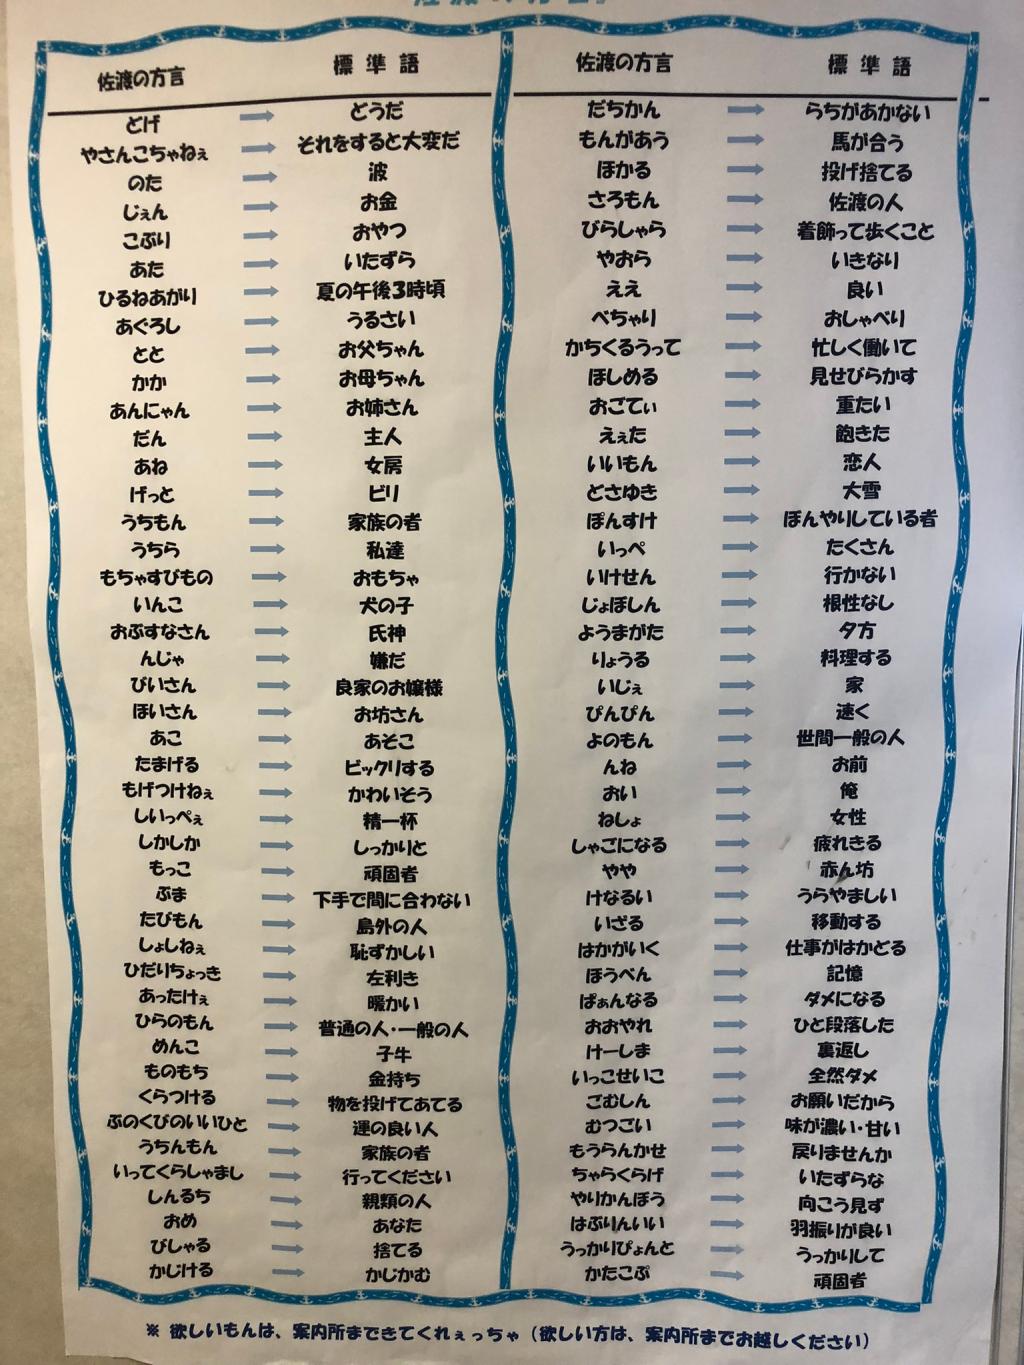 佐渡の方言
佐渡の方言 標準語
とげ → どうだ
やさんこちゃねぇ → それをすると大変だ
のた → 波
じぇん → お金
こぶり → おやつ
あた → いたずら
ひるねあがり → 夏の午後3時頃
あぐろし → うるさい
とと → お父ちゃん
かか → お母ちゃん
あんにゃん → お姉さん
だん → 主人
あね → 女房
げっと → ビリ
うちもん → 家族の者
うちら → 私達
もちゃすびもの → おもちゃ
いんこ → 犬の子
おぶすなさん → 氏神
んじゃ → 嫌だ
びいさん → 良家のお嬢様
ほいさん → お坊さん
あこ → あそこ
たまげる → ビックリする
もげつけねぇ → かわいそう
しいっぺぇ → 精一杯
しかしか → しっかりと
もっこ → 頑固者
ぶま → 下手で間に合わない
たびもん → 島外の人
しょしねぇ → 恥ずかしい
ひだりちょっき → 左利き
あったけぇ → 暖かい
ひらのもん → 普通の人・一般の人
めんこ → 子牛
ものもち → 金持ち
くらつける → 物を投げてあてる
ぶのくびのいいひと → 運の良い人
うちんもん → 家族の者
いってくらしゃまし → 行ってください
しんるち → 親類の人
おめ → あなた
びしゃる → 捨てる
かじける → かじかむ
佐渡の方言 標準語
だちかん → らちがあかない
もんがあう → 馬が合う
ほかる → 投げ捨てる
さろもん → 佐渡の人
びらしゃら → 着飾って歩くこと
やおら → いきなり
ええ → 良い
べちゃり → おしゃべり
かちくるうって → 忙しく働いて
ほしめる → 見せびらかす
おごてぃ → 重たい
えぇた → 飽きた
いいもん → 恋人
どさゆき → 大雪
ぽんすけ → ぼんやりしている者
いっぺ → たくさん
いけせん → 行かない
じょぼしん → 根性なし
ようまがた → 夕方
りょうる → 料理する
いじぇ → 家
ぴんぴん → 速く
よのもん → 世間一般の人
んね → お前
おい → 俺
ねしょ → 女性
しゃごになる → 疲れきる
やや → 赤ん坊
けなるい → うらやましい
いざる → 移動する
はかがいく → 仕事がはかどる
ほうべん → 記憶
ばぁんなる → ダメになる
おおやれ → ひと段落した
けーしま → 裏返し
いっこせいこ → 全然ダメ
ごむしん → お願いだから
むつごい → 味が濃い・甘い
もうらんかせ → 戻りませんか
ちゃらくらげ → いたずらな
やりかんぼう → 向こう見ず
はぶりんいい → 羽振りが良い
うっかりぴょんと → うっかりして
かたこぶ → 頑固者
※ 欲しいもんは、案内所まできてくれぇっちゃ（欲しい方は、案内所までお越しください）